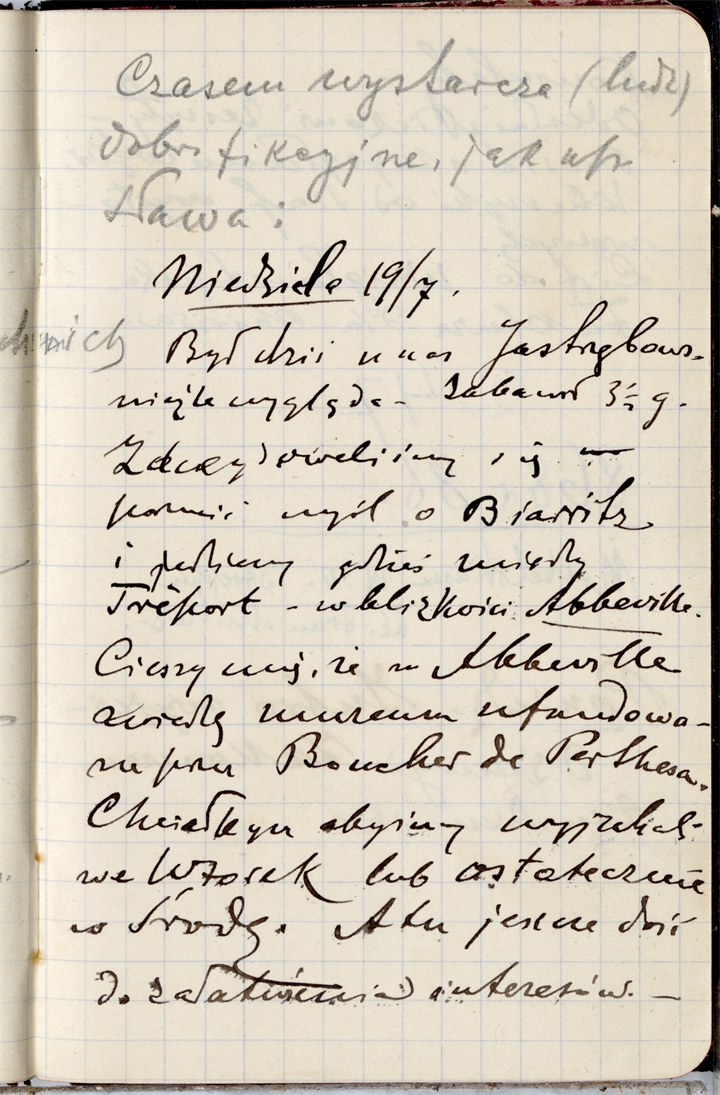 Czasem wystarcza (ludz)
dobrefikcyjne, jak np
sława:
Niedziela 19/7.
Był dziś u nas Jastrzębows.
nieźle wygląda - zabawił 3½ g.
Zdecydowaliśmy się
porzucić myśl o Biarritz
i jedziemy gdzieś między
Tréport - w blizkości Abbeville.
Cieszy mię, że w Abbeville
zwiedzę muzeum ufundowa-
ne przez Boucher de Perthesa.
Chciałbym abyśmy wyjechali
we Wtorek lub ostatecznie
w Środę. A tu jeszcze dość
do załatwienia interesów. —